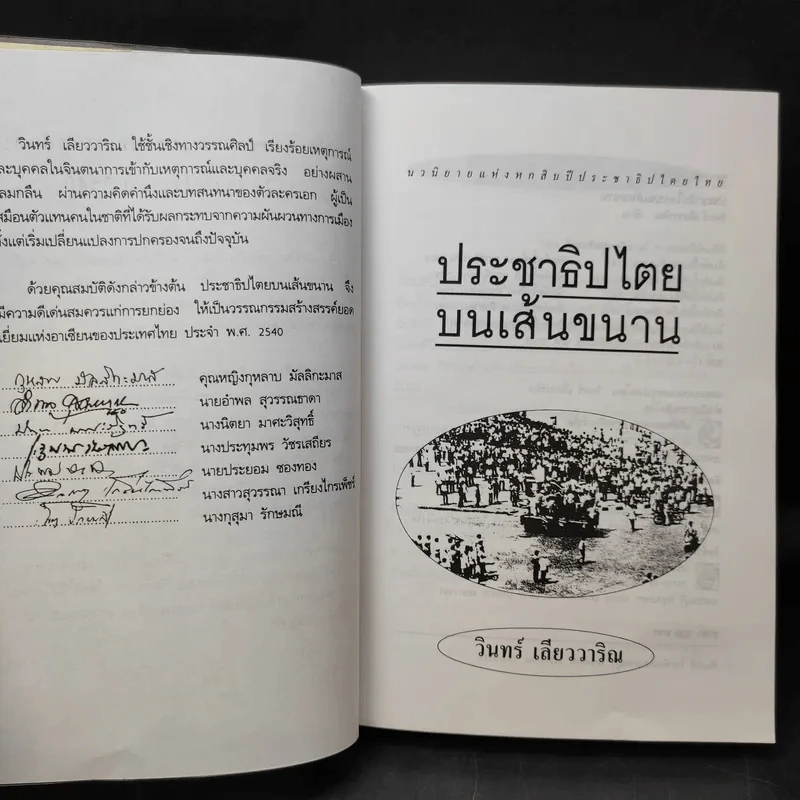 วินทร์ เลียววาริณ ใช้ชั้นเชิงทางวรรณศิลป์ เรียงร้อยเหตุการณ์
ละบุคคลในจินตนาการเข้ากับเหตุการณ์และบุคคลจริง อย่างผสาน
ลมกลืน ผ่านความคิดคำนึงและบทสนทนาของตัวละครเอก ผู้เป็น
สมือนตัวแทนคนในชาติที่ได้รับผลกระทบจากความผันผวนทางการเมือง
ั้งแต่เริ่มเปลี่ยนแปลงการปกครองจนถึงปัจจุบัน
ด้วยคุณสมบัติดังกล่าวข้างต้น ประชาธิปไตยบนเส้นขนาน จึง
มีความดีเด่นสมควรแก่การยกย่อง ให้เป็นวรรณกรรมสร้างสรรค์ยอด
เยี่ยมแห่งอาเซียนของประเทศไทย ประจำ พ.ศ. 2540
คุณหญิงกุหลาบ มัลลิกะมาส
นายอำพล สุวรรณธาดา
นางนิตยา มาศะวิสุทธิ์
นางประทุมพร วัชรเสถียร
นายประยอม ซองทอง
นางสาวสุวรรณา เกรียงไกรเพ็ชร์
นางกุสุมา รักษมณี
นวนิยายแห่งหกสิบปีประชาธิปไตยไทย
ประชาธิปไตย
บนเส้นขนาน
วินทร์ เลียววาริณ